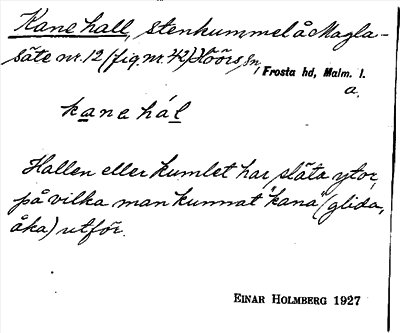 Kane hall, stenkummel å Magla-
säte nr. 12 (fig. nr. 42) Höörs sn,
Frosta hd, Malm. l.
a.
kane hál
Hallen eller kumlet har släta ytor,
på vilka man kunnat "kana" (glida,
åka) utför.
EINAR HOLMBERG 1927